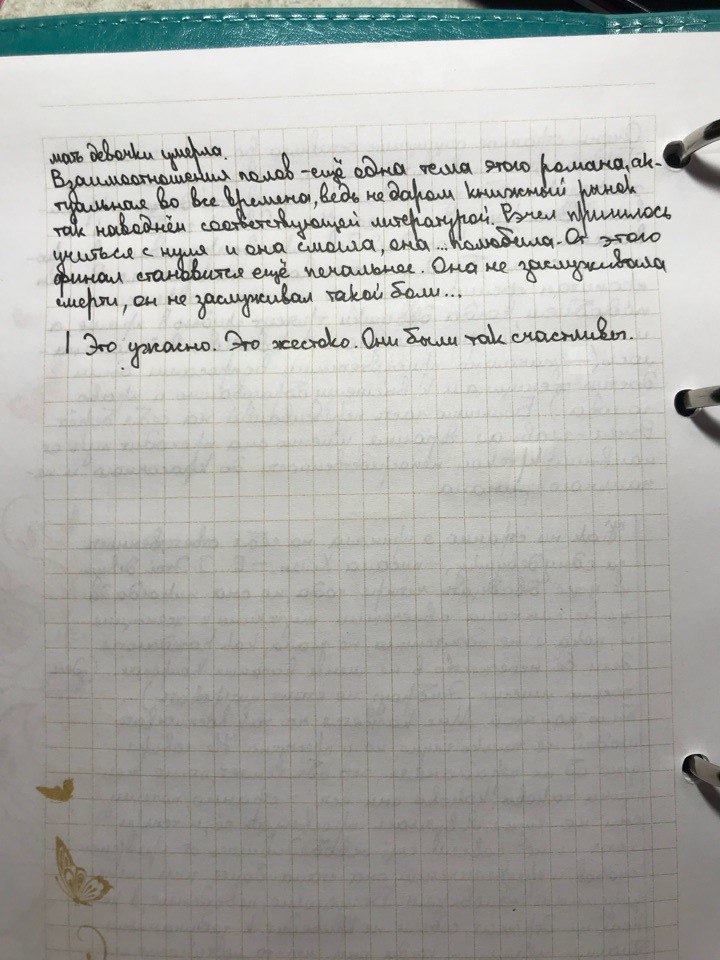 мать девочки умерла.
Взаимоотношения полов - ещё одна тема этого романа, ак-
туальная во все времена, ведь не даром книжный рынок
так наводнён соответствующей литературой. Рэчел пришлось
учиться с нуля и она смогла, она ... полюбила. От этого
финал становится ещё печальнее. Она не заслуживала
смерти, он не заслуживал такой боли...
Это ужасно. Это жестоко. Они были так счастливы.